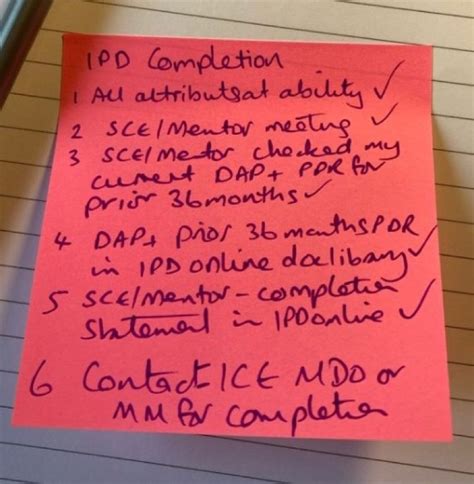 IPD Completion
1 All attributes at ability ✓
2 SCE/Mentor meeting ✓
3 SCE/Mentor checked my
current DAP + PDR for
prior 36 months ✓
4 DAP + prior 36 months PDR
in IPD online doc library ✓
5 SCE/Mentor - completion
statement in IPD online ✓
6 Contact ICE MDO or
MM for completion